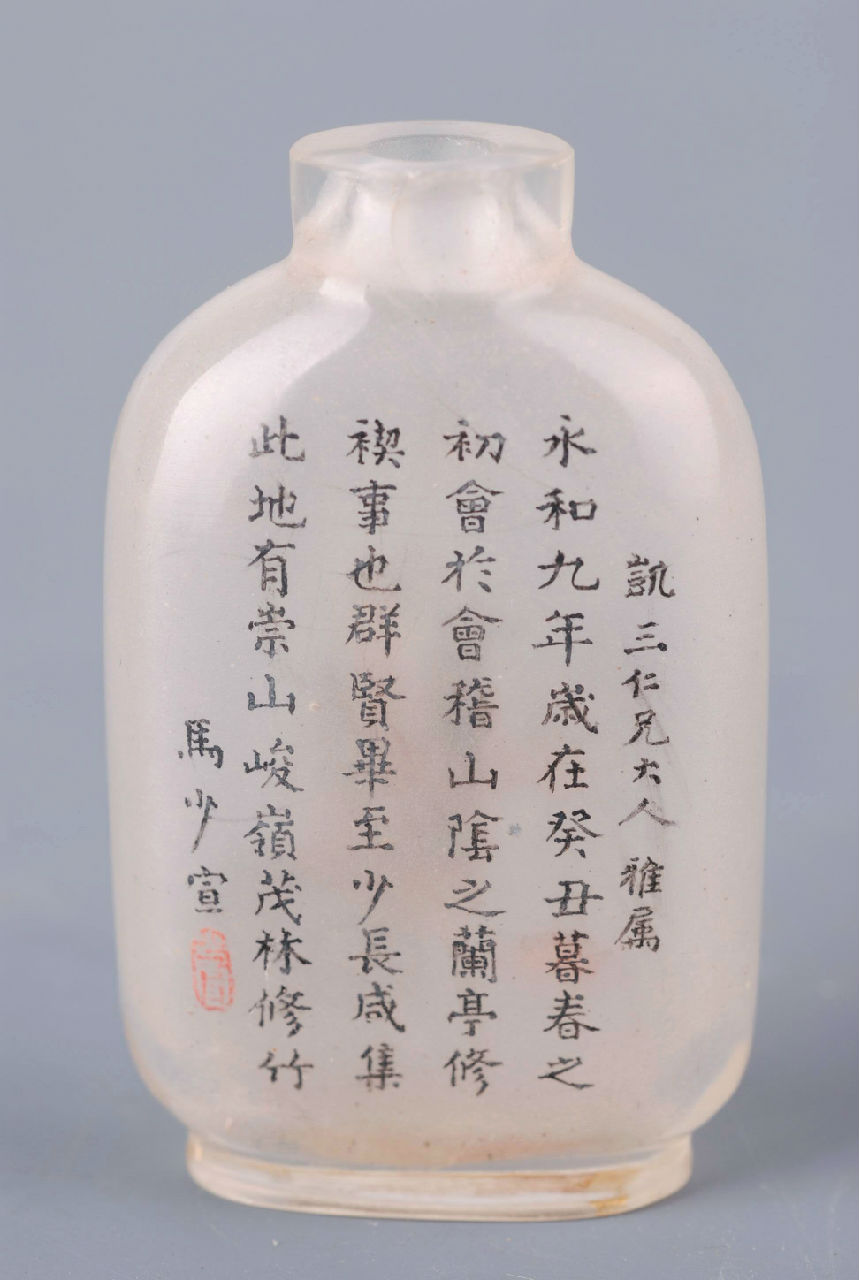 凱三仁兄大人雅属
永和九年歲在癸丑暮春之
初會於會稽山陰之蘭亭修
禊事也群賢畢至少長咸集
此地有崇山峻嶺茂林修竹
馬少宣